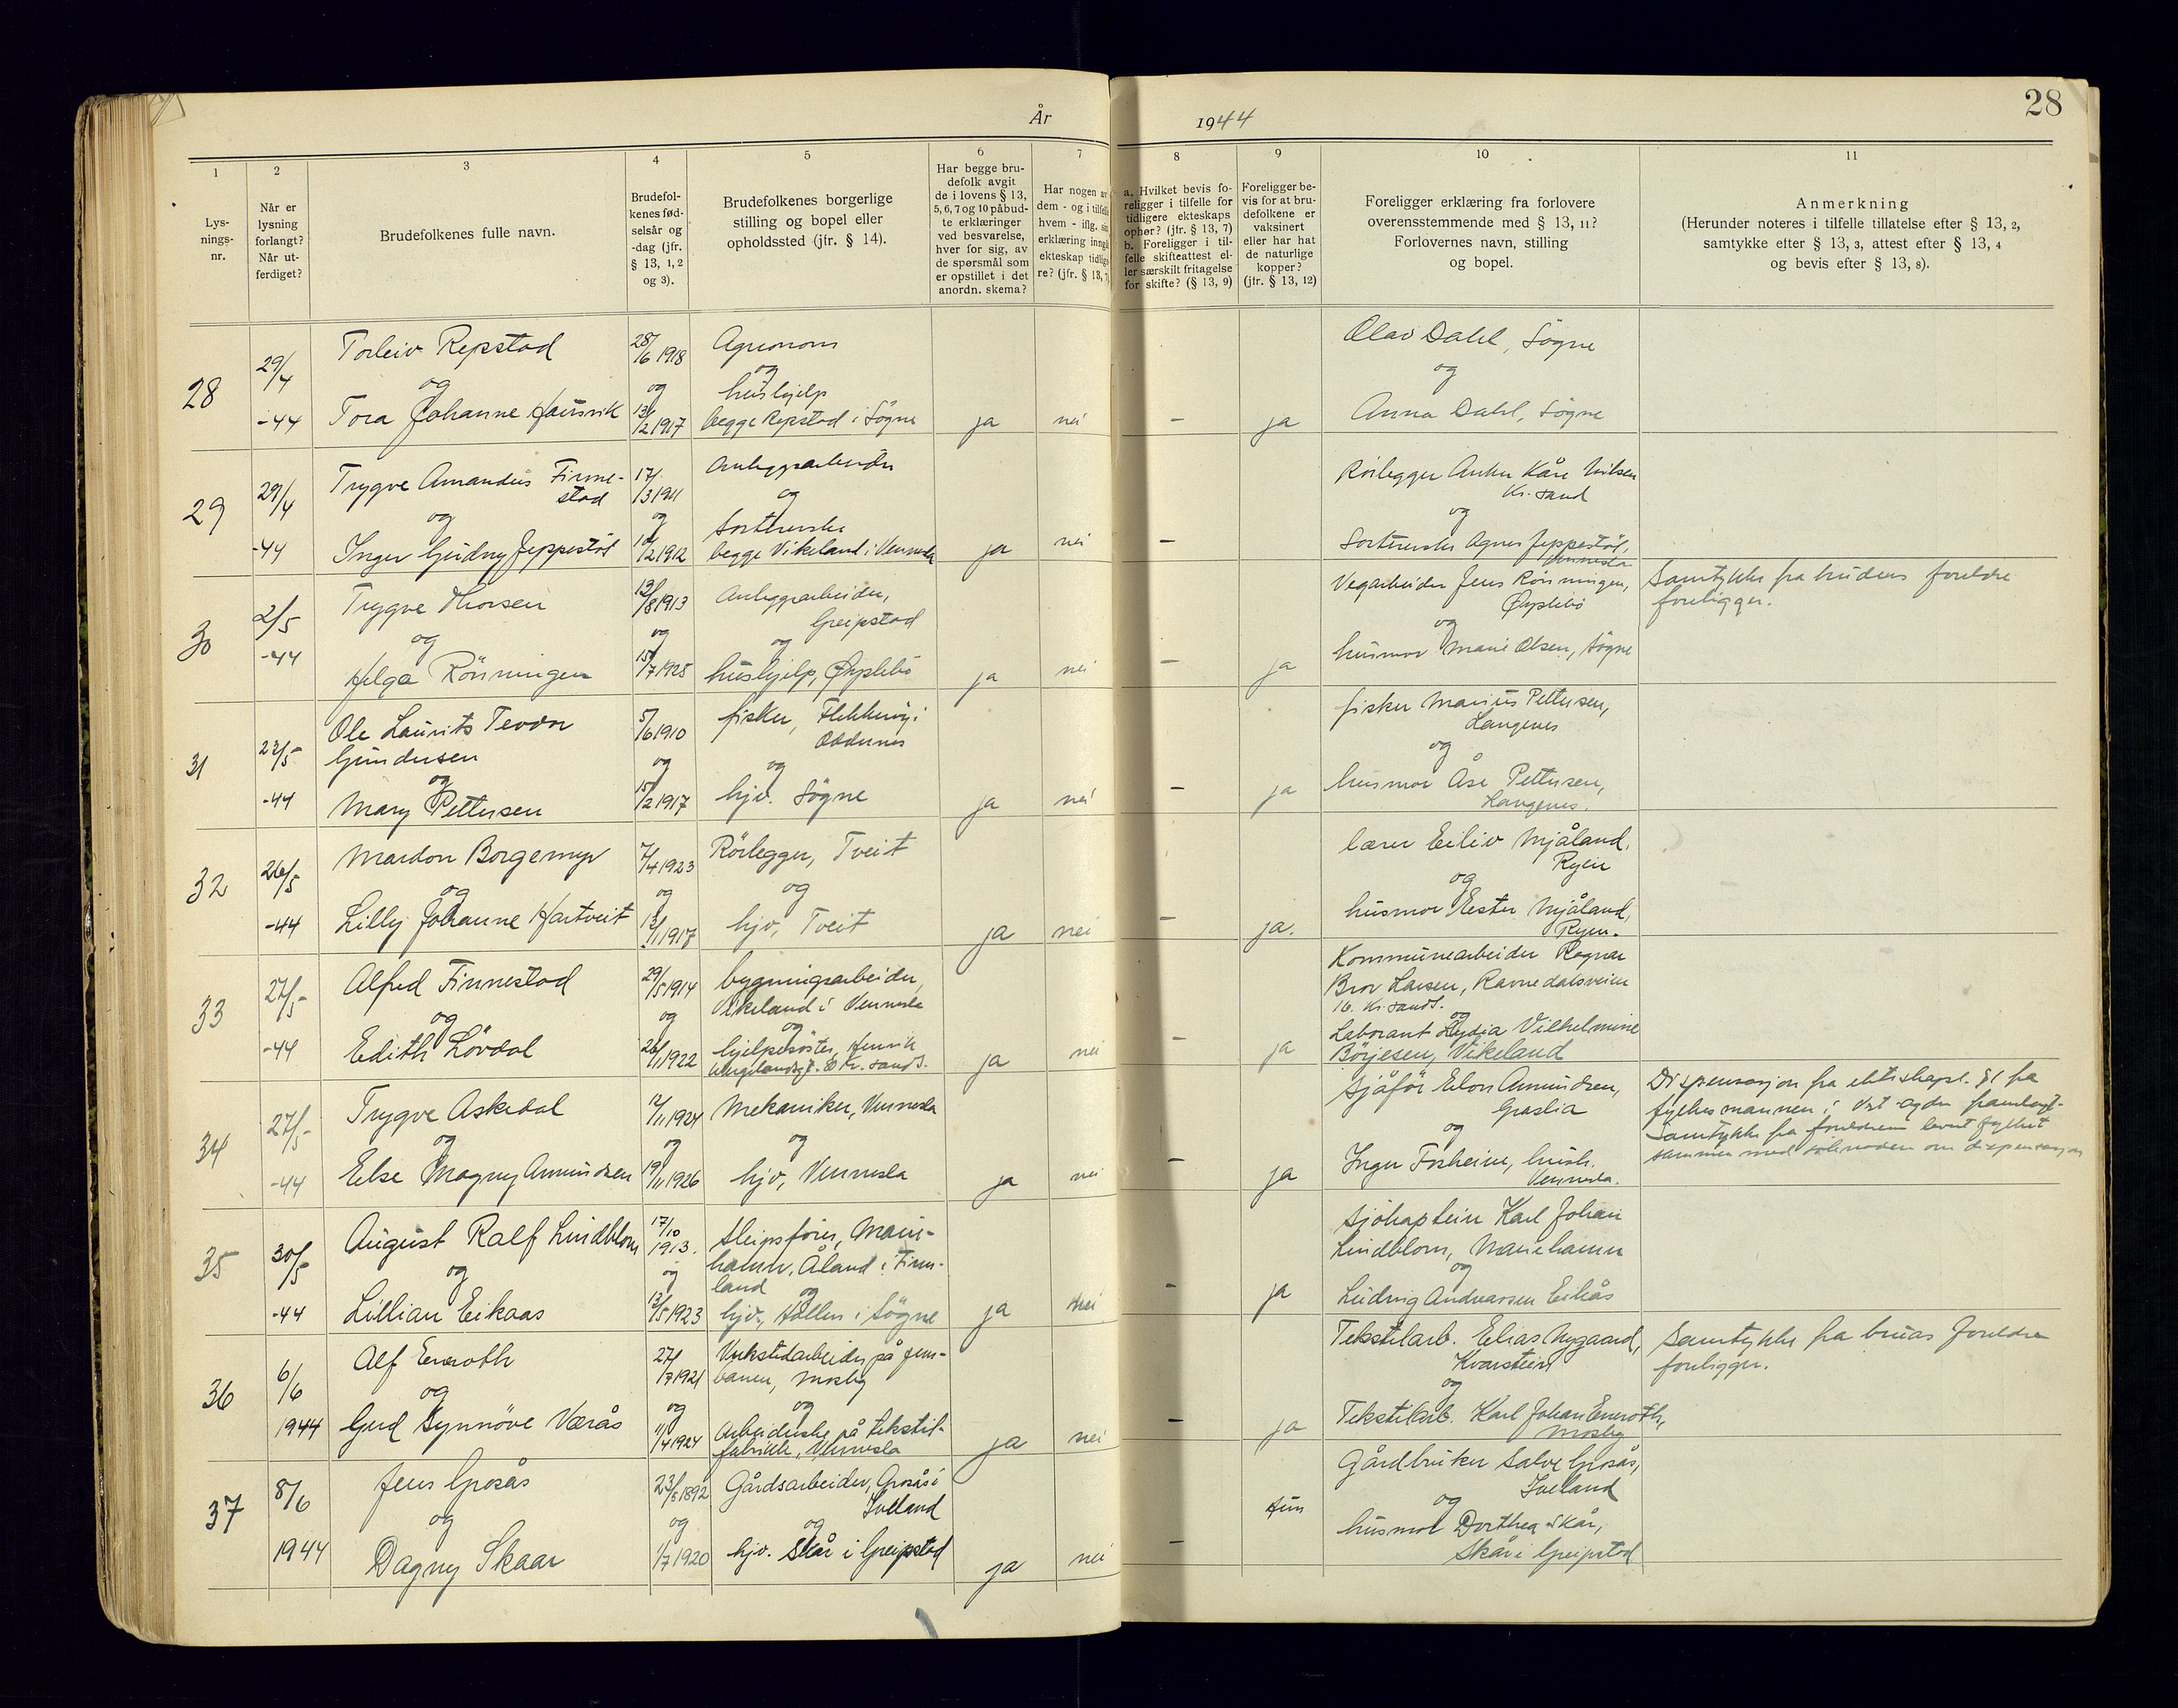 År 1944
28
1
2
3
4
5
6
7
8
9
10
11
Lys-
nings-
nr.
Når er
lysning
forlangt?
Når ut-
ferdiget?
Brudefolkenes fulle navn.
Brudefol-
kenes fød-
selsår og
-dag (jfr.
§ 13, 1, 2
og 3).
Brudefolkenes borgerlige
stilling og bopel eller
opholdssted (jfr. § 14).
Har begge bru-
defolk avgit
de i lovens § 13,
5, 6, 7 og 10 påbud-
te erklæringer
ved besvarelse,
hver for sig, av
de spørsmål som
er opstillet i det
anordn. skema?
Har nogen av
dem - og i tilfelle
hvem - iflg. sin
erklæring inngå
ekteskap tidlige
re? (jfr. § 13, 7)
a. Hvilket bevis fo-
religger i tilfelle for
tidligere ekteskaps
ophør? (jfr. § 13, 7)
b. Foreligger i til-
felle skifteattest el-
ler særskilt fritagelse
for skifte? (§ 13, 9)
Foreligger be-
vis for at bru-
defolkene er
vaksinert
eller har hat
de naturlige
kopper?
(jfr. § 13, 12)
Foreligger erklæring fra forlovere
overensstemmende med § 13, 11?
Forlovernes navn, stilling
og bopel.
Anmerkning
(Herunder noteres i tilfelle tillatelse efter § 13, 2,
samtykke efter § 13, 3, attest efter § 13, 4
og bevis efter § 13, 8).
28
29/4
-44
Torleiv Repstad
og
Tora Johanne Hausvik
28/6 1918
og
13/2 1917
Agronom
og
hushjelp
begge Repstad i Søgne
ja
nei
-
ja
Olav Dahl, Søgne
og
Anna Dahl, Søgne
29
29/4
-44
Trygve Amandus Finne-
stad
og
Inger Gudny Jeppestøl
17/3 1911
og
/2 1912
Anleggsarbeider
og
Sorterske
begge Vikeland i Vennesla
ja
nei
-
Rørlegger Kåre Nilsen
Kr.sand
og
Sorterske Agnes Jeppestøl,
Vennesla
30
2/5
-44
Trygve Thorsen
og
Helga Rönningen
13/8 1913
og
15/7 1925
Anleggsarbeider,
Greipstad
og
hushjelp, Øyslebö
ja
nei
-
ja
Vegarbeider Jens Rönningen,
Øyslebö
og
husmor Marie Olsen, Søgne
Samtykke fra brudens foreldre
foreligger.
31
23/5
-44
Ole Laurits Teodor
Gundersen
og
Mary Pettersen
5/6 1910
og
15/2 1917
fisker, Flekkerøy i
Oddernes
og
hjv. Sögne
ja
nei
-
ja
fisker Marius Pettersen,
Langenes
og
husmor Åse Pettersen,
Langenes.
32
26/5
-44
Mardon Borgemyr
og
Lilly Johanne Hartveit
7/4 1923
og
13/1 1917
Rörlegger, Tveit
og
hjv, Tveit
ja
nei
-
ja.
lærer Eiliv Mjåland,
Ryen
og
husmor Ester Mjåland,
Ryen.
33
27/5
-44
Alfred Finnestad
og
Edith Lövdal
29/5 1914
og
26/1 1922
bygningsarbeider,
Vikeland i Vennesla
og
hjelpesöster, Henrik
Wergelandsgt. Kr.sand S.
ja
nei
-
ja
Kommunearbeider Ragnar
Bror Larsen, Ravnedalsveien
16. Kr.sand S.
og
Laborant Lydia Vilhelmine
Börjesen, Vikeland
34
27/5
-44
Trygve Askedal
og
Else Magny Amundsen
12/11 1924
og
19/11 1926
Mekaniker, Vennesla
og
hjv, Vennesla
ja
nei
-
ja
Sjåför Elon Amundsen,
Graslia
og
Inger Fosheim, hush.
Vennesla.
Dispensasjon fra ekteskapsl. §1 fra
fylkesmannen i Vest-Agder framlagt.
Samtykke fra foreldrene levert fylket
sammen med söknaden om dispensasjon
35
30/5
-44
August Ralf Lindblom
og
Lillian Eikaas
17/10
1913.
og
13/5 1923
Skipsförer, Marie-
hamn, Åland i Finn-
land
og
hjv, Höllen i Sögne
ja
nei
-
ja
Sjökaptein Karl Johan
Lindblom, Mariehamn
og
Ludvig Andreassen Eikås
36
6/6
1944
Alf Eneroth
og
Gerd Synnöve Værås
27/7 1921
og
11/4 1924
Verkstedarbeider på jern-
banen, Mosby
og
Arbeiderske på tekstil-
fabrikk, Vennesla
ja
nei
-
ja
Tekstilarb. Elias Nygaard,
Kvarstein
og
Tekstilarb. Karl Johan Eneroth,
Mosby
Samtykke fra bruas foreldre
foreligger.
37
8/6
1944
Jens Grosås
og
Dagny Skaar
23/5 1892
og
1/7 1920
Gårdsarbeider, Grosås i
Iveland
og
hjv. Skår i Greipstad
ja
nei
-
Hun
Gårdbruker Salve Grosås,
Iveland
og
husmor Dorthea Skår,
Skår i Greipstad